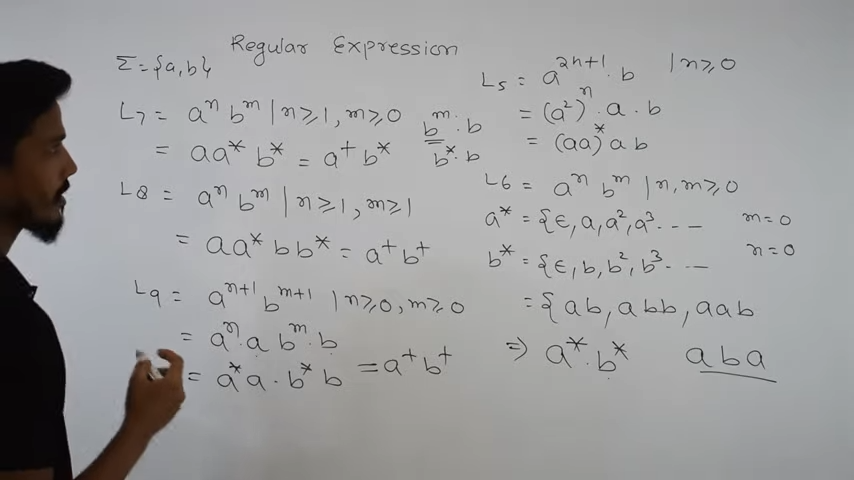 Regular Expression
Σ = {a, b}
L₇ = aⁿ bᵐ | n ≥ 1, m ≥ 0
= aa* b* = a⁺ b*
bᵐ · b
b* · b
L₈ = aⁿ bᵐ | n ≥ 1, m ≥ 1
= aa* bb* = a⁺ b⁺
L₉ = aⁿ⁺¹ bᵐ⁺¹ | n ≥ 0, m ≥ 0
= aⁿ · a bᵐ · b
= a* a · b* b = a⁺ b⁺
L₅ = a²ⁿ⁺¹ · b | n ≥ 0
= (a²)ⁿ · a · b
= (aa)* a b
L₆ = aⁿ bᵐ | n, m ≥ 0
a* = {ϵ, a, a², a³ - - - -
m = 0
b* = {ϵ, b, b², b³ - - - -
n = 0
= {ab, abb, aab
⇒ a* · b*
aba